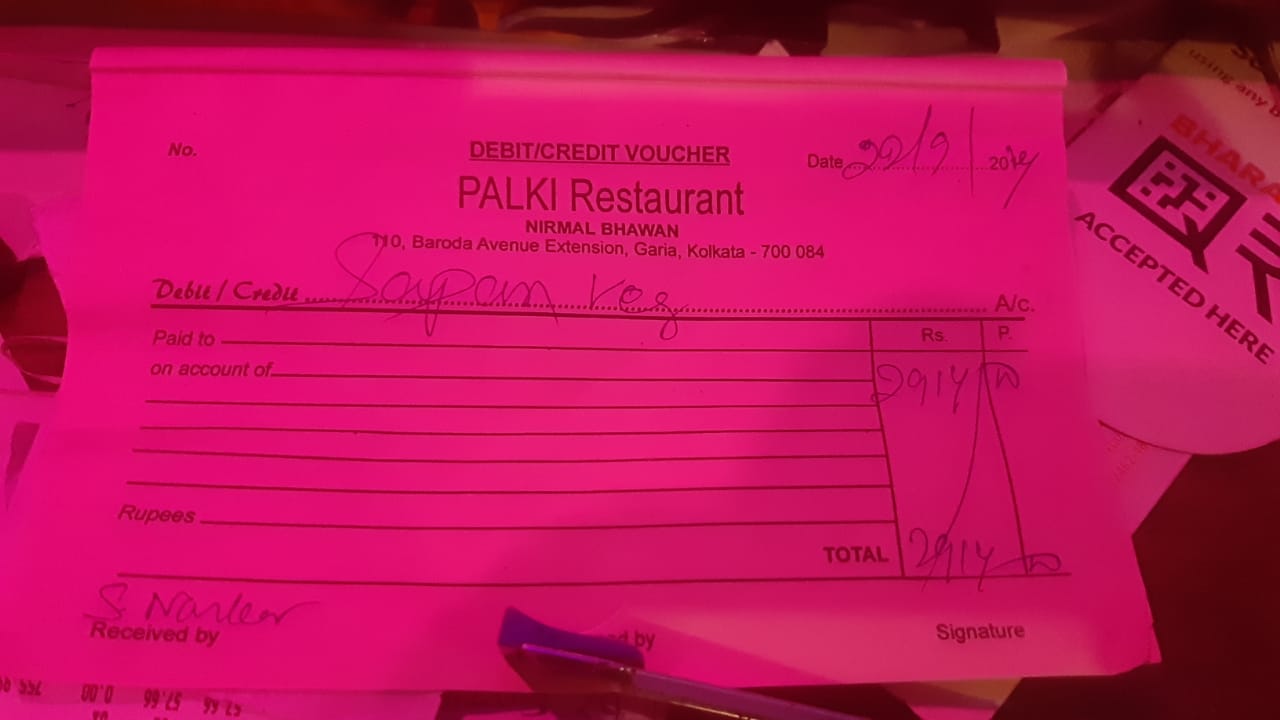 No.
DEBIT/CREDIT VOUCHER
Date 22/9/ 20
PALKI Restaurant
NIRMAL BHAWAN
110, Baroda Avenue Extension, Garia, Kolkata - 700 084
Debit / Credit Sapan Veg A/c.
Paid to Rs. P.
on account of 2914
Rupees
TOTAL 2914
S
Received by
d by
Signature
using any
BHARA
ACCEPTED HERE
0.00 57.66